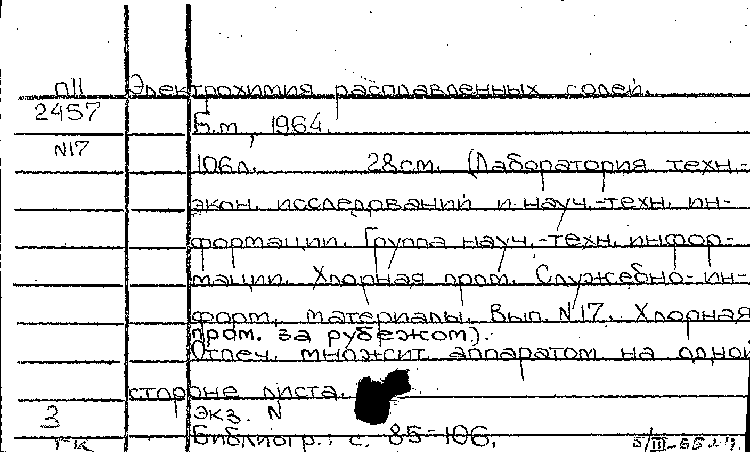 П11 Электрохимия расплавленных солей.
2457 Б.м., 1964.
N17 106л. 28см. (Лаборатория техн.-
экон. исследований и науч.-техн. ин-
формации. Группа науч.-техн. инфор-
мации. Хлорная пром. Служебно-ин-
форм. материалы. Вып. N17. Хлорная
пром. за рубежом).
Отпеч. множит. аппаратом на одной
стороне листа.
3 Экз. N
ГК Библиогр.: с. 85-106.